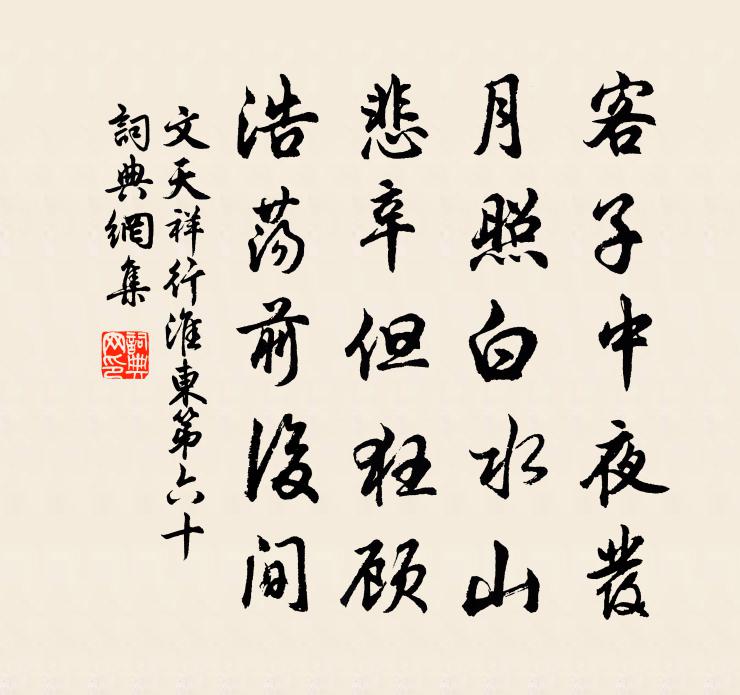 客子中夜發
月照白水山
悲辛但狂顾
浩荡前後间
文天祥行淮東第六十
詞典網集
詞典网印